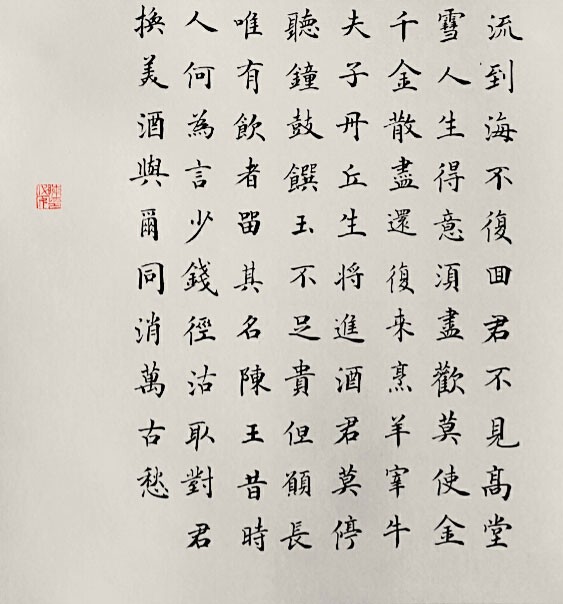 流到海不復囬君不見髙堂
雪人生得意須盡歡莫使金
千金散盡還復来烹羊宰牛
夫子丹丘生将進酒君莫停
聽鐘鼓饌玉不足貴但願長
唯有飲者留其名陳王昔時
人何為言少錢徑沽取對君
換美酒與爾同消萬古愁